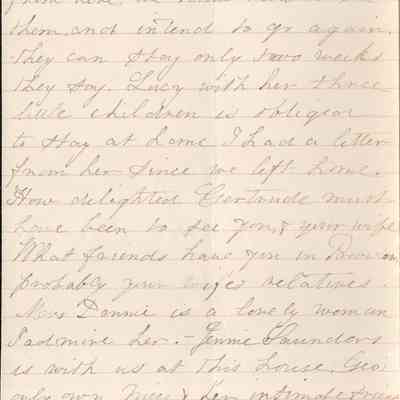 them, not intend to go again.
They can stay only two weeks
they say. Lucy with her three
little children is obliged
to stay at home I had a letter
from her since we left home.
How delighted Gertrude must
have been to see you, & your wife
What friends have you in
probably your wifes relatives.
Mrs Dannie is a lovely woman
I admire her. - Jennie Saunders
is with us at this house, Geo
only own niece & her intimate friend